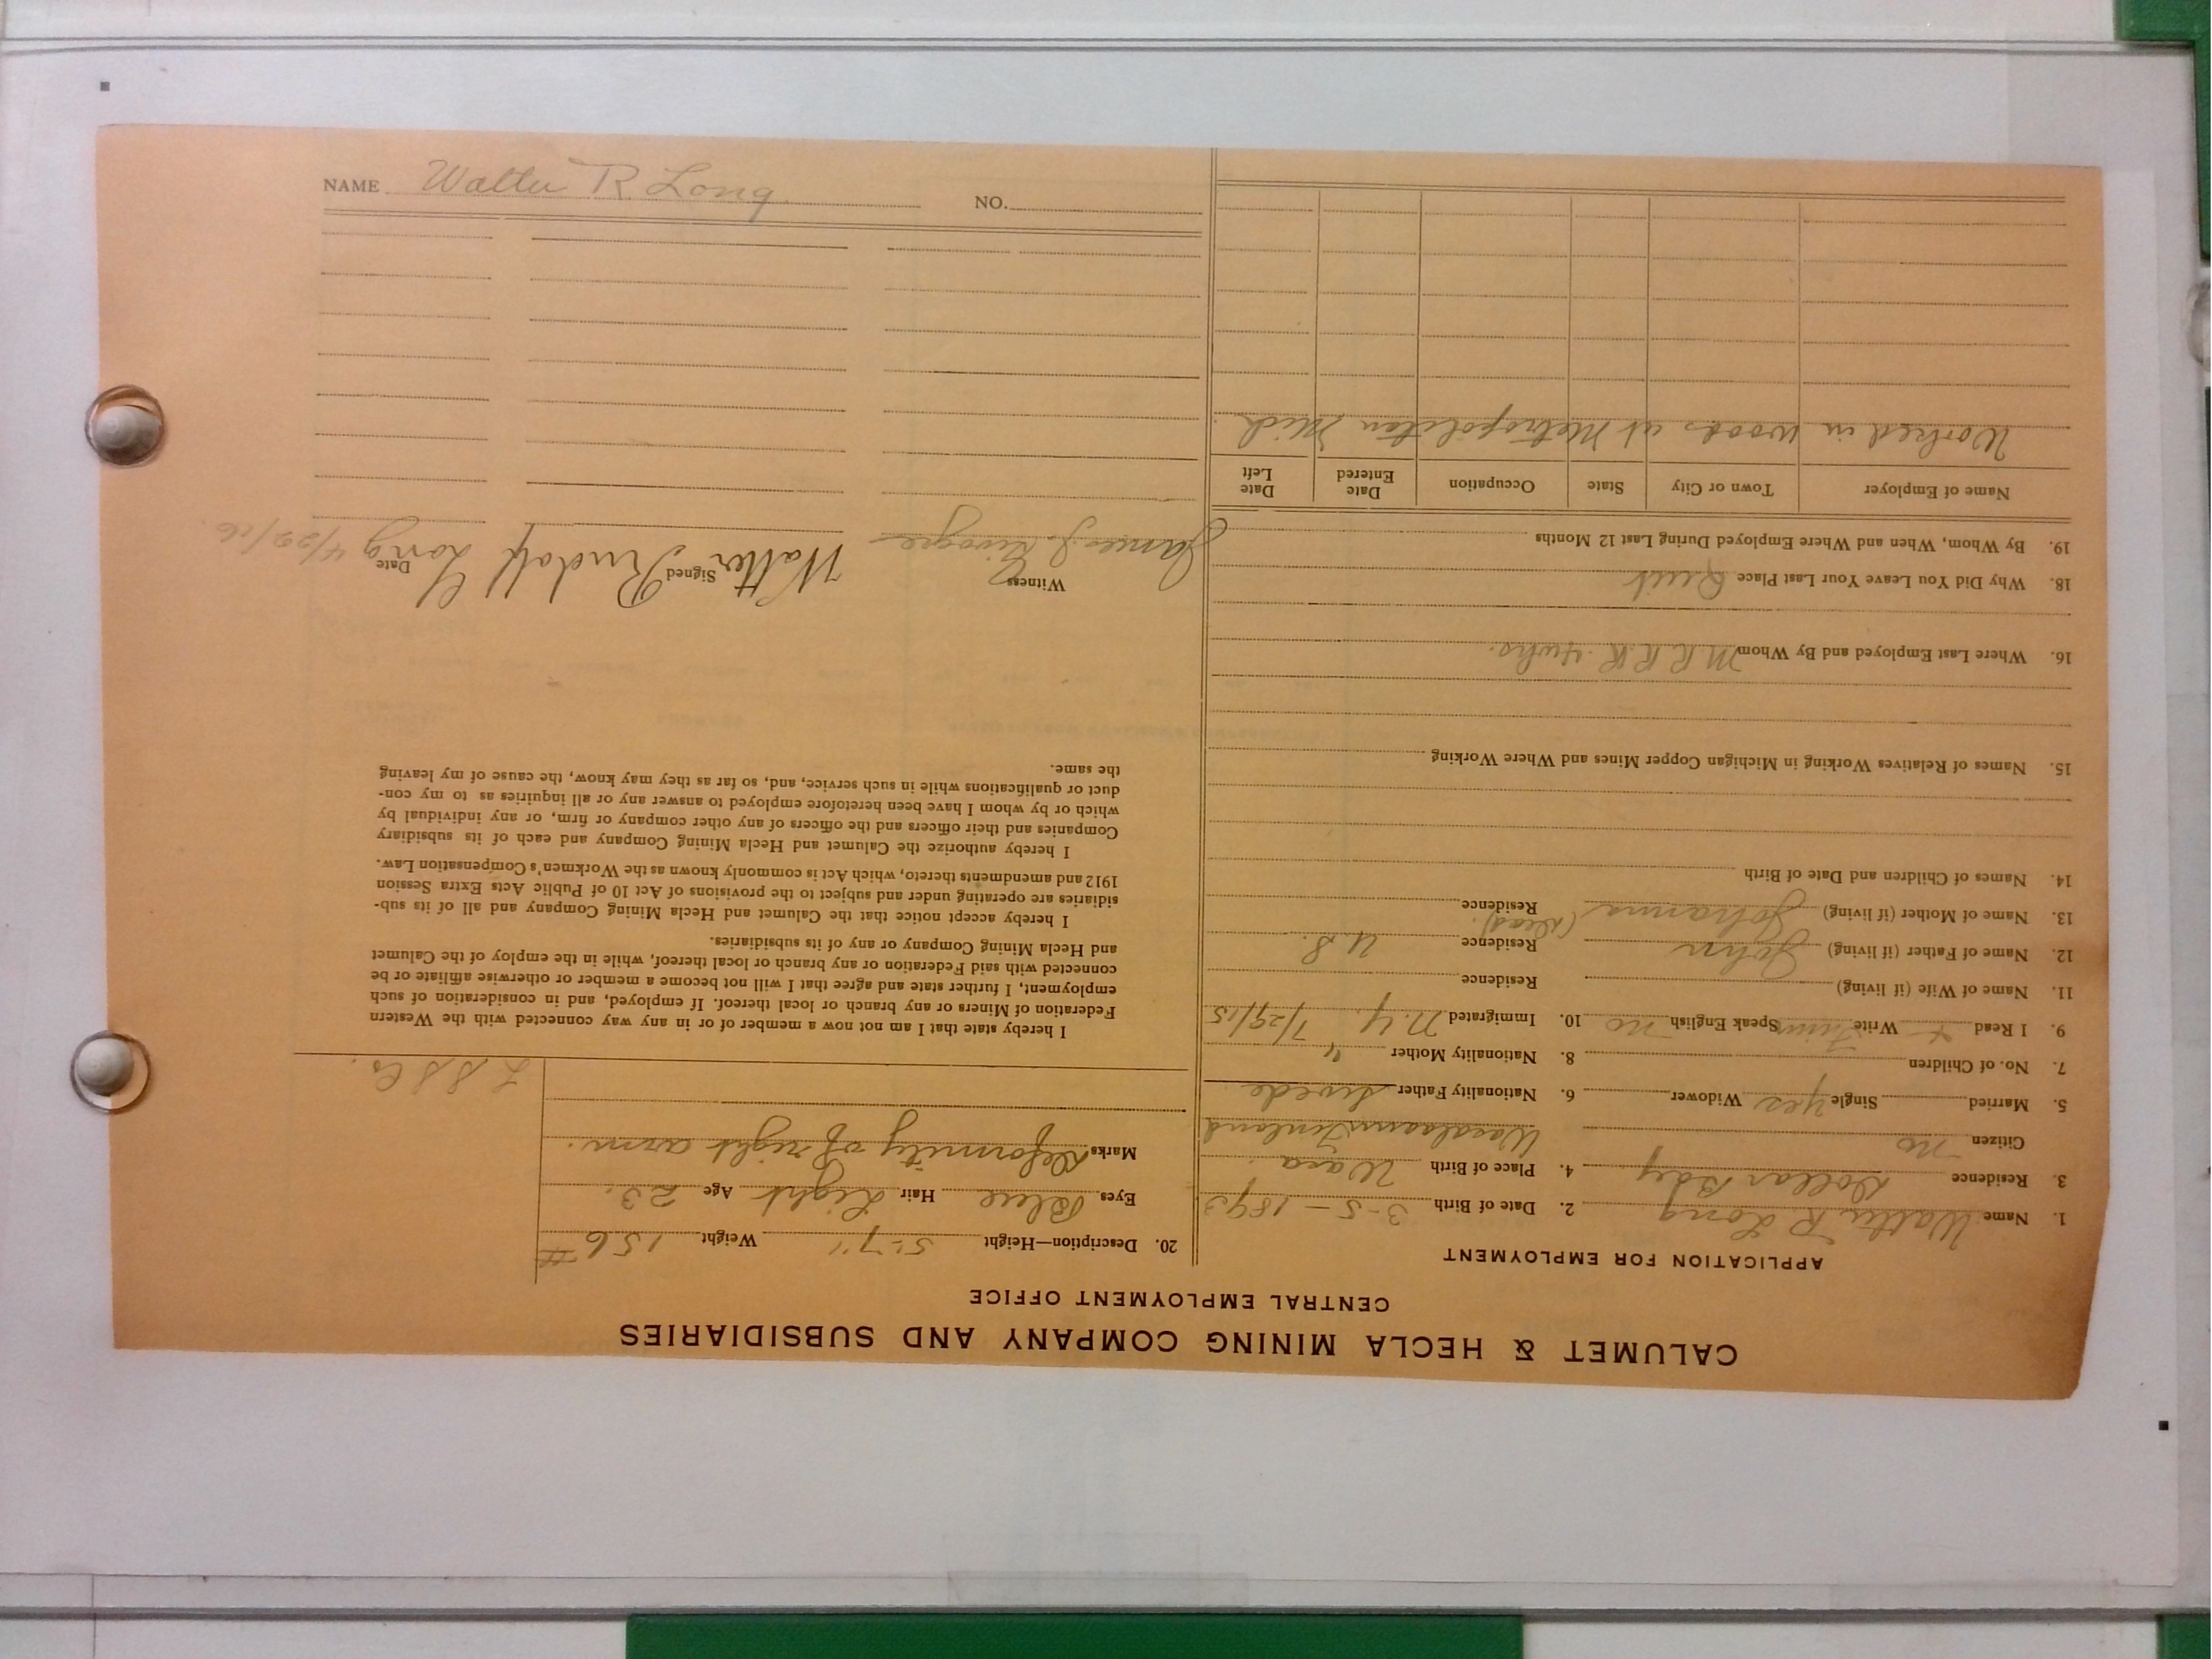 CALUMET & HECLA MINING COMPANY AND SUBSIDIARIES
CENTRAL EMPLOYMENT OFFICE
APPLICATION FOR EMPLOYMENT
1. Name Walter R Long 2. Date of Birth 3-5-1893
3. Residence Dollar Bay 4. Place of Birth Wasa
Citizen no Finland
5. Married Single yes Widower 6. Nationality Father Swede
7. No. of Children 8. Nationality Mother "
9. I Read + Write Finn Speak English no 10. Immigrated N.Y. 7/29/15
11. Name of Wife (if living) Residence
12. Name of Father (if living) John Residence U.S.
13. Name of Mother (if living) Johanna (dead) Residence
14. Names of Children and Date of Birth
15. Names of Relatives Working in Michigan Copper Mines and Where Working
16. Where Last Employed and By Whom M R R R
18. Why Did You Leave Your Last Place Quit
19. By Whom, When and Where Employed During Last 12 Months
Name of Employer Town or City State Occupation Date Entered Date Left
Worked in woods at Metropolitan Mich
20. Description—Height 5-7" Weight 156 #
Eyes Blue Hair Light Age 23
Marks Deformity of right arm.
L S S Co.
I hereby state that I am not now a member of or in any way connected with the Western
Federation of Miners or any branch or local thereof. If employed, and in consideration of such
employment, I further state and agree that I will not become a member or otherwise affiliate or be
connected with said Federation or any branch or local thereof, while in the employ of the Calumet
and Hecla Mining Company or any of its subsidiaries.
I hereby accept notice that the Calumet and Hecla Mining Company and all of its sub-
sidiaries are operating under and subject to the provisions of Act 10 of Public Acts Extra Session
1912 and amendments thereto, which Act is commonly known as the Workmen's Compensation Law.
I hereby authorize the Calumet and Hecla Mining Company and each of its subsidiary
Companies and their officers and the officers of any other company or firm, or any individual by
which or by whom I have been heretofore employed to answer any or all inquiries as to my con-
duct or qualifications while in such service, and, so far as they may know, the cause of my leaving
the same.
Witness Signed Date
James J. Walter Rudolf Long 4/22/16
NAME Walter R Long NO.